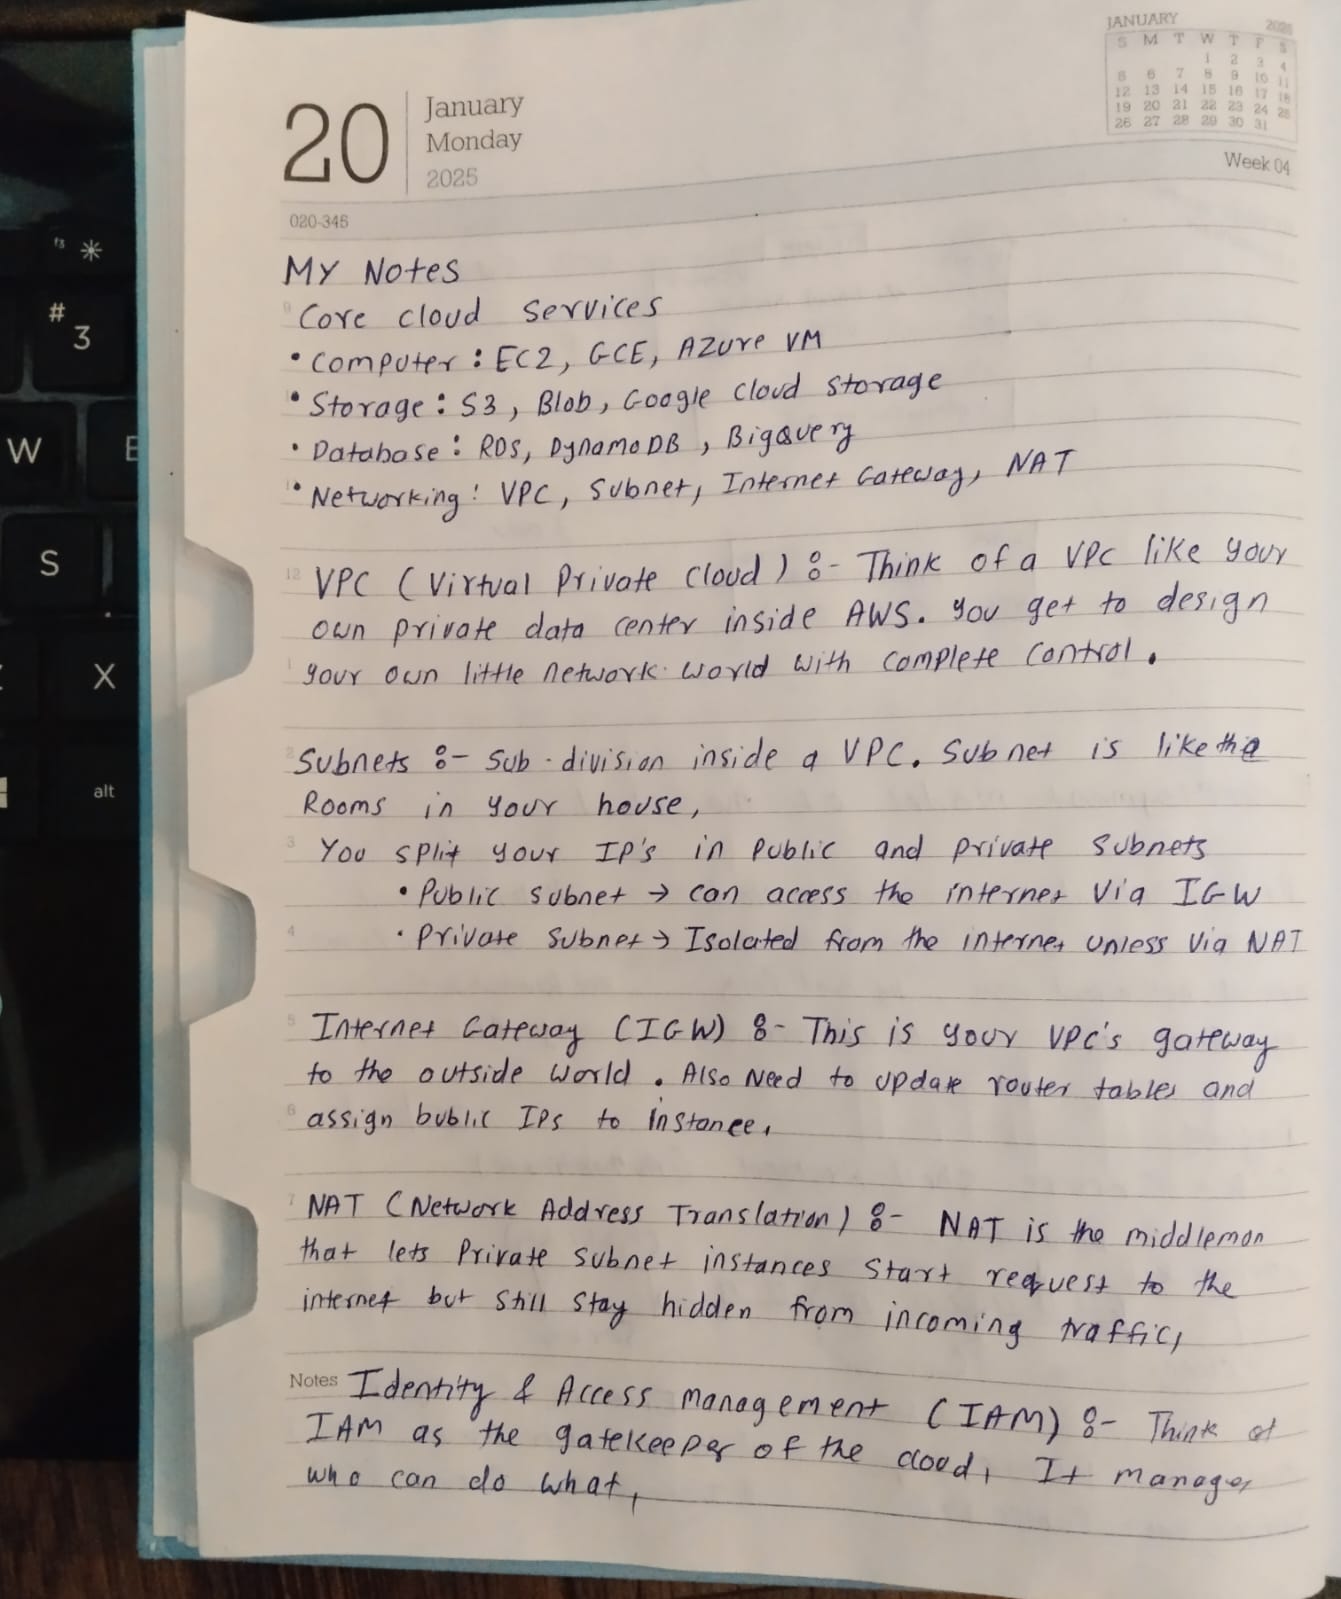 JANUARY 2025
S M T W T F S
1 2 3 4
5 6 7 8 9 10 11
12 13 14 15 16 17 18
19 20 21 22 23 24 25
26 27 28 29 30 31
20
January
Monday
2025
Week 04
020-345
My Notes
9 Core cloud services
• Computer : EC2, GCE, Azure VM
• Storage : S3, Blob, Google Cloud Storage
• Database : RDS, DynamoDB, BigQuery
• Networking : VPC, Subnet, Internet Gateway, NAT
12 VPC (Virtual Private Cloud) :- Think of a VPC like your
own private data center inside AWS. You get to design
1 your own little network world with complete control.
2 Subnets :- Sub-division inside a VPC. Subnet is like the
Rooms in your house,
3 You split your IP's in Public and private subnets
• Public subnet → can access the internet via IGW
4 • Private subnet → Isolated from the internet unless via NAT
5 Internet Gateway (IGW) :- This is your VPC's gateway
to the outside world. Also Need to update router tables and
6 assign bublic IPs to instance,
7 NAT (Network Address Translation) :- NAT is the middleman
that lets Private subnet instances start request to the
internet but still stay hidden from incoming traffic,
Notes Identity & Access management (IAM) :- Think of
IAM as the gatekeeper of the cloud, It manages
who can do what,
f3 *
# 3
W E
S
X
alt